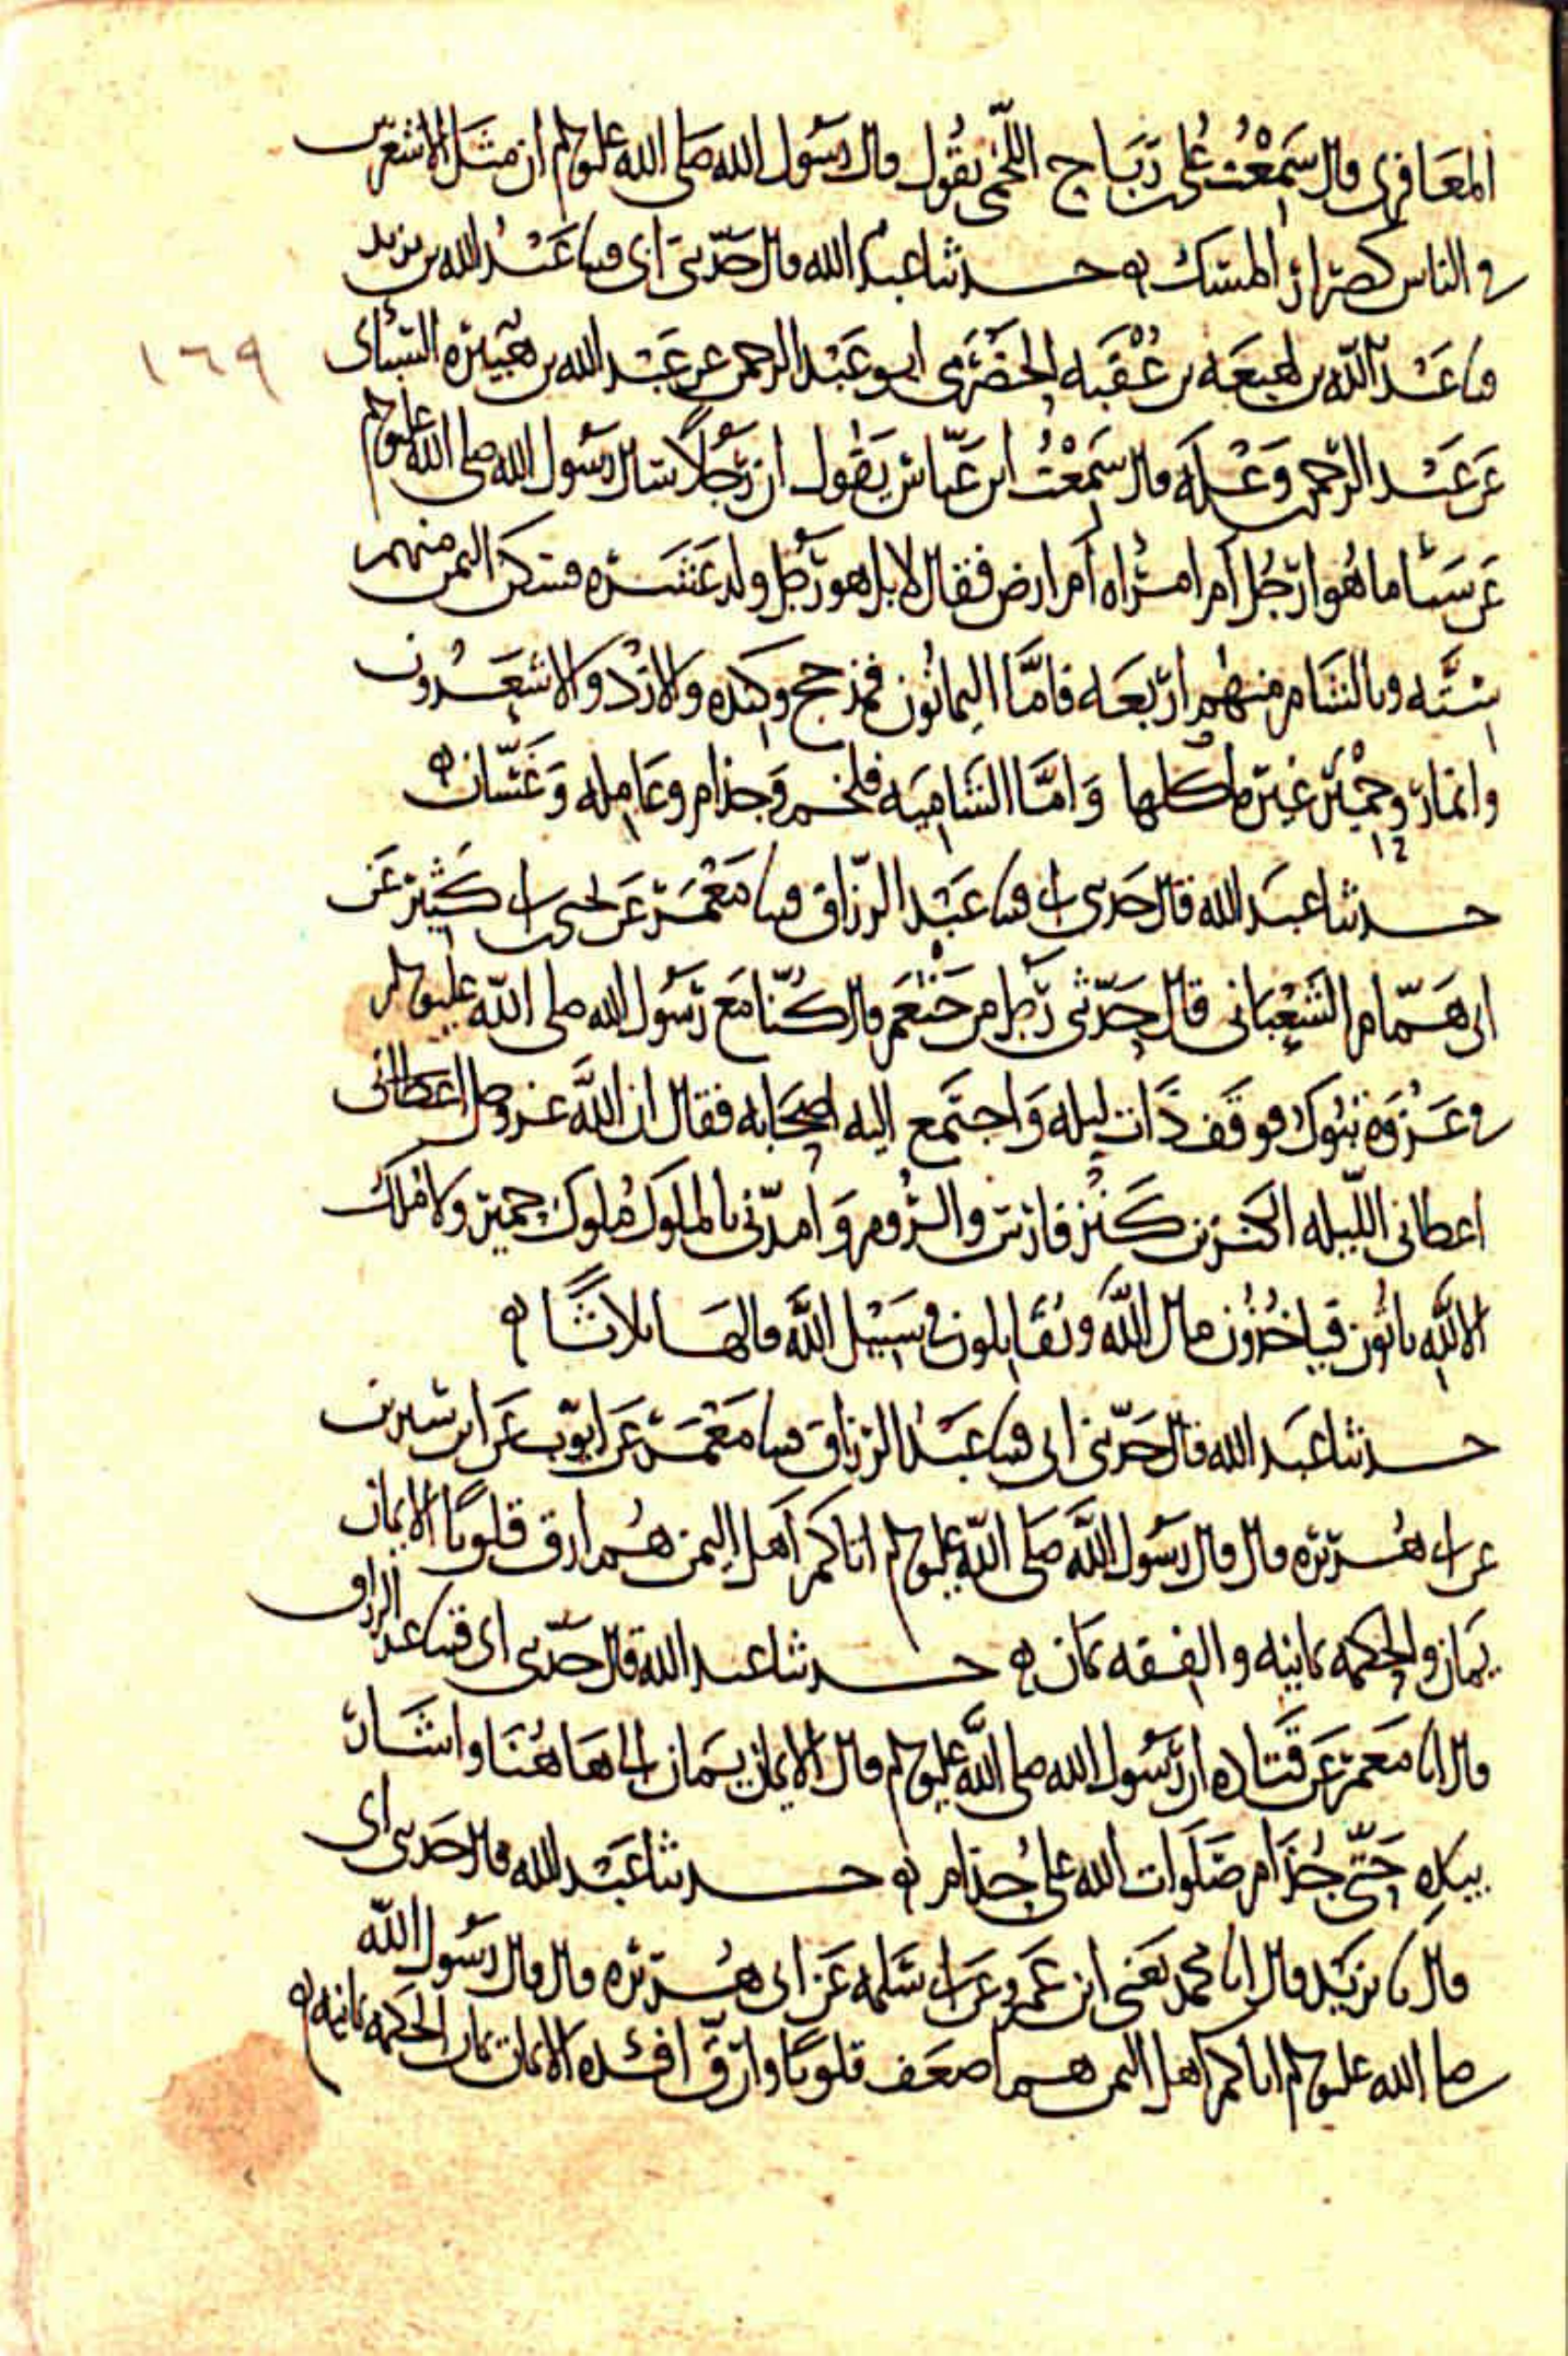 المعافري قال سمعت علي بن رباح اللخمي يقول قال رسول الله صلى الله عليه وسلم ان مثل الاشعريين
في الناس كصرار المسك حدثنا عبد الله قال حدثني ابي قثنا عبد الله بن يزيد
قثنا عبد الله بن لهيعة بن عقبه الحضرمي ابو عبد الرحمن عن عبد الله بن هبيرة السبائي
١٦٩
عن عبد الرحمن بن وعلة قال سمعت ابن عباس يقول ان رجلا سال رسول الله صلى الله عليه وسلم
عن سبأ ما هو ارجل أم امراه أم ارض فقال لا بل هو رجل ولد عشره فسكن اليمن منهم
ستّه وبالشام منهم اربعه فامّا اليمانون فمذحج وكنده والازد والاشعرون
وانمار وحمير غير ما كلها وامّا الشاميه فلخم وجذام وعامله وغسّان
حدثنا عبد الله قال حدثني ابي قثنا عبد الرزاق قثنا معمر عن يحيى بن ابي كثير عن
ابي همّام الشعباني قال حدّثني رجل من خثعم قال كنّا مع رسول الله صلى الله عليه وسلم
في غزوة تبوك فوقف ذات ليله واجتمع اليه اصحابه فقال ان الله عز وجل اعطاني
اعطاني الليله الكنزين كنز فارس والروم وامدّني بالملوك ملوك حمير ولا ملك
الا لله ياتون فياخذون مال الله ويقاتلون في سبيل الله قالها ثلاثًا
حدثنا عبد الله قال حدّثني ابي قثنا عبد الرزاق قثنا معمر عن ايوب عن ابن سيرين
عن ابي هريره قال قال رسول الله صلى الله عليه وسلم اتاكم أهل اليمن هم ارق قلوبًا الايمان
يمان والحكمه يمانيه والفقه يمان حدثنا عبد الله قال حدثني ابي قثنا عبد الرزاق
قال انا معمر عن قتاده ان رسول الله صلى الله عليه وسلم قال الايمان يمان الى هاهنا واشار
بيده حتّى جذام صلوات الله على جذام حدثنا عبد الله قال حدثني ابي
قال نا يزيد قال انا محمد يعني ابن عمرو عن ابي سلمه عن ابي هريره قال قال رسول الله
صلى الله عليه وسلم اتاكم أهل اليمن هم اضعف قلوبًا وارقّ افئده الايمان يمان الحكمه يمانيه